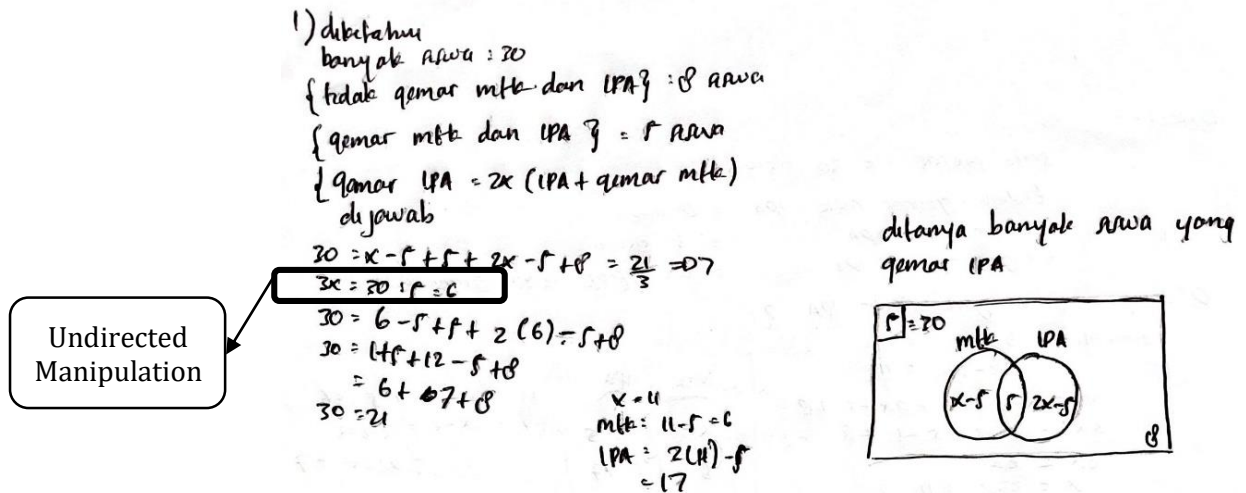 1) diketahui
banyak siswa : 30
{ tidak gemar mtk dan IPA} : 8 siswa
{ gemar mtk dan IPA } = 5 siswa
{ gemar IPA = 2x (IPA + gemar mtk)
dijawab
30 = x - 5 + 5 + 2x - 5 + 8 = 21/3 = 7
3x = 30 : 5 = 6
30 = 6 - 5 + 5 + 2 (6) - 5 + 8
30 = 1 + 5 + 12 - 5 + 8
= 6 + 7 + 8
30 = 21
x = 11
mtk : 11 - 5 = 6
IPA : 2(11) - 5
= 17
Undirected
Manipulation
ditanya banyak siswa yang
gemar IPA
S = 30
mtk IPA
x-5 5 2x-5
8